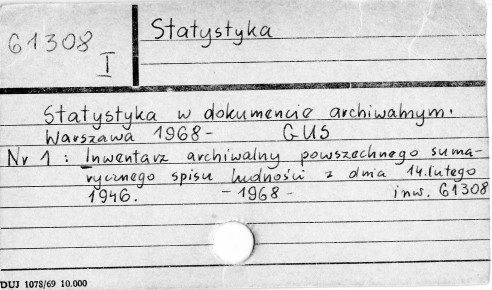 61308
I
Statystyka
Statystyka w dokumencie archiwalnym.
Warszawa 1968- GUS
Nr 1: Inwentarz archiwalny powszechnego suma-
rycznego spisu ludności z dnia 14.lutego
1946. - 1968 - inw. 61308
DUJ 1078/69 10.000